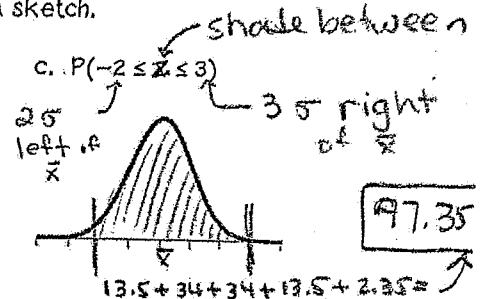 sketch.
shade between
c. P(-2 ≤ z ≤ 3)
2σ
left of
x̄
3σ right
of x̄
97.35
x̄
13.5+34+34+13.5+2.35=